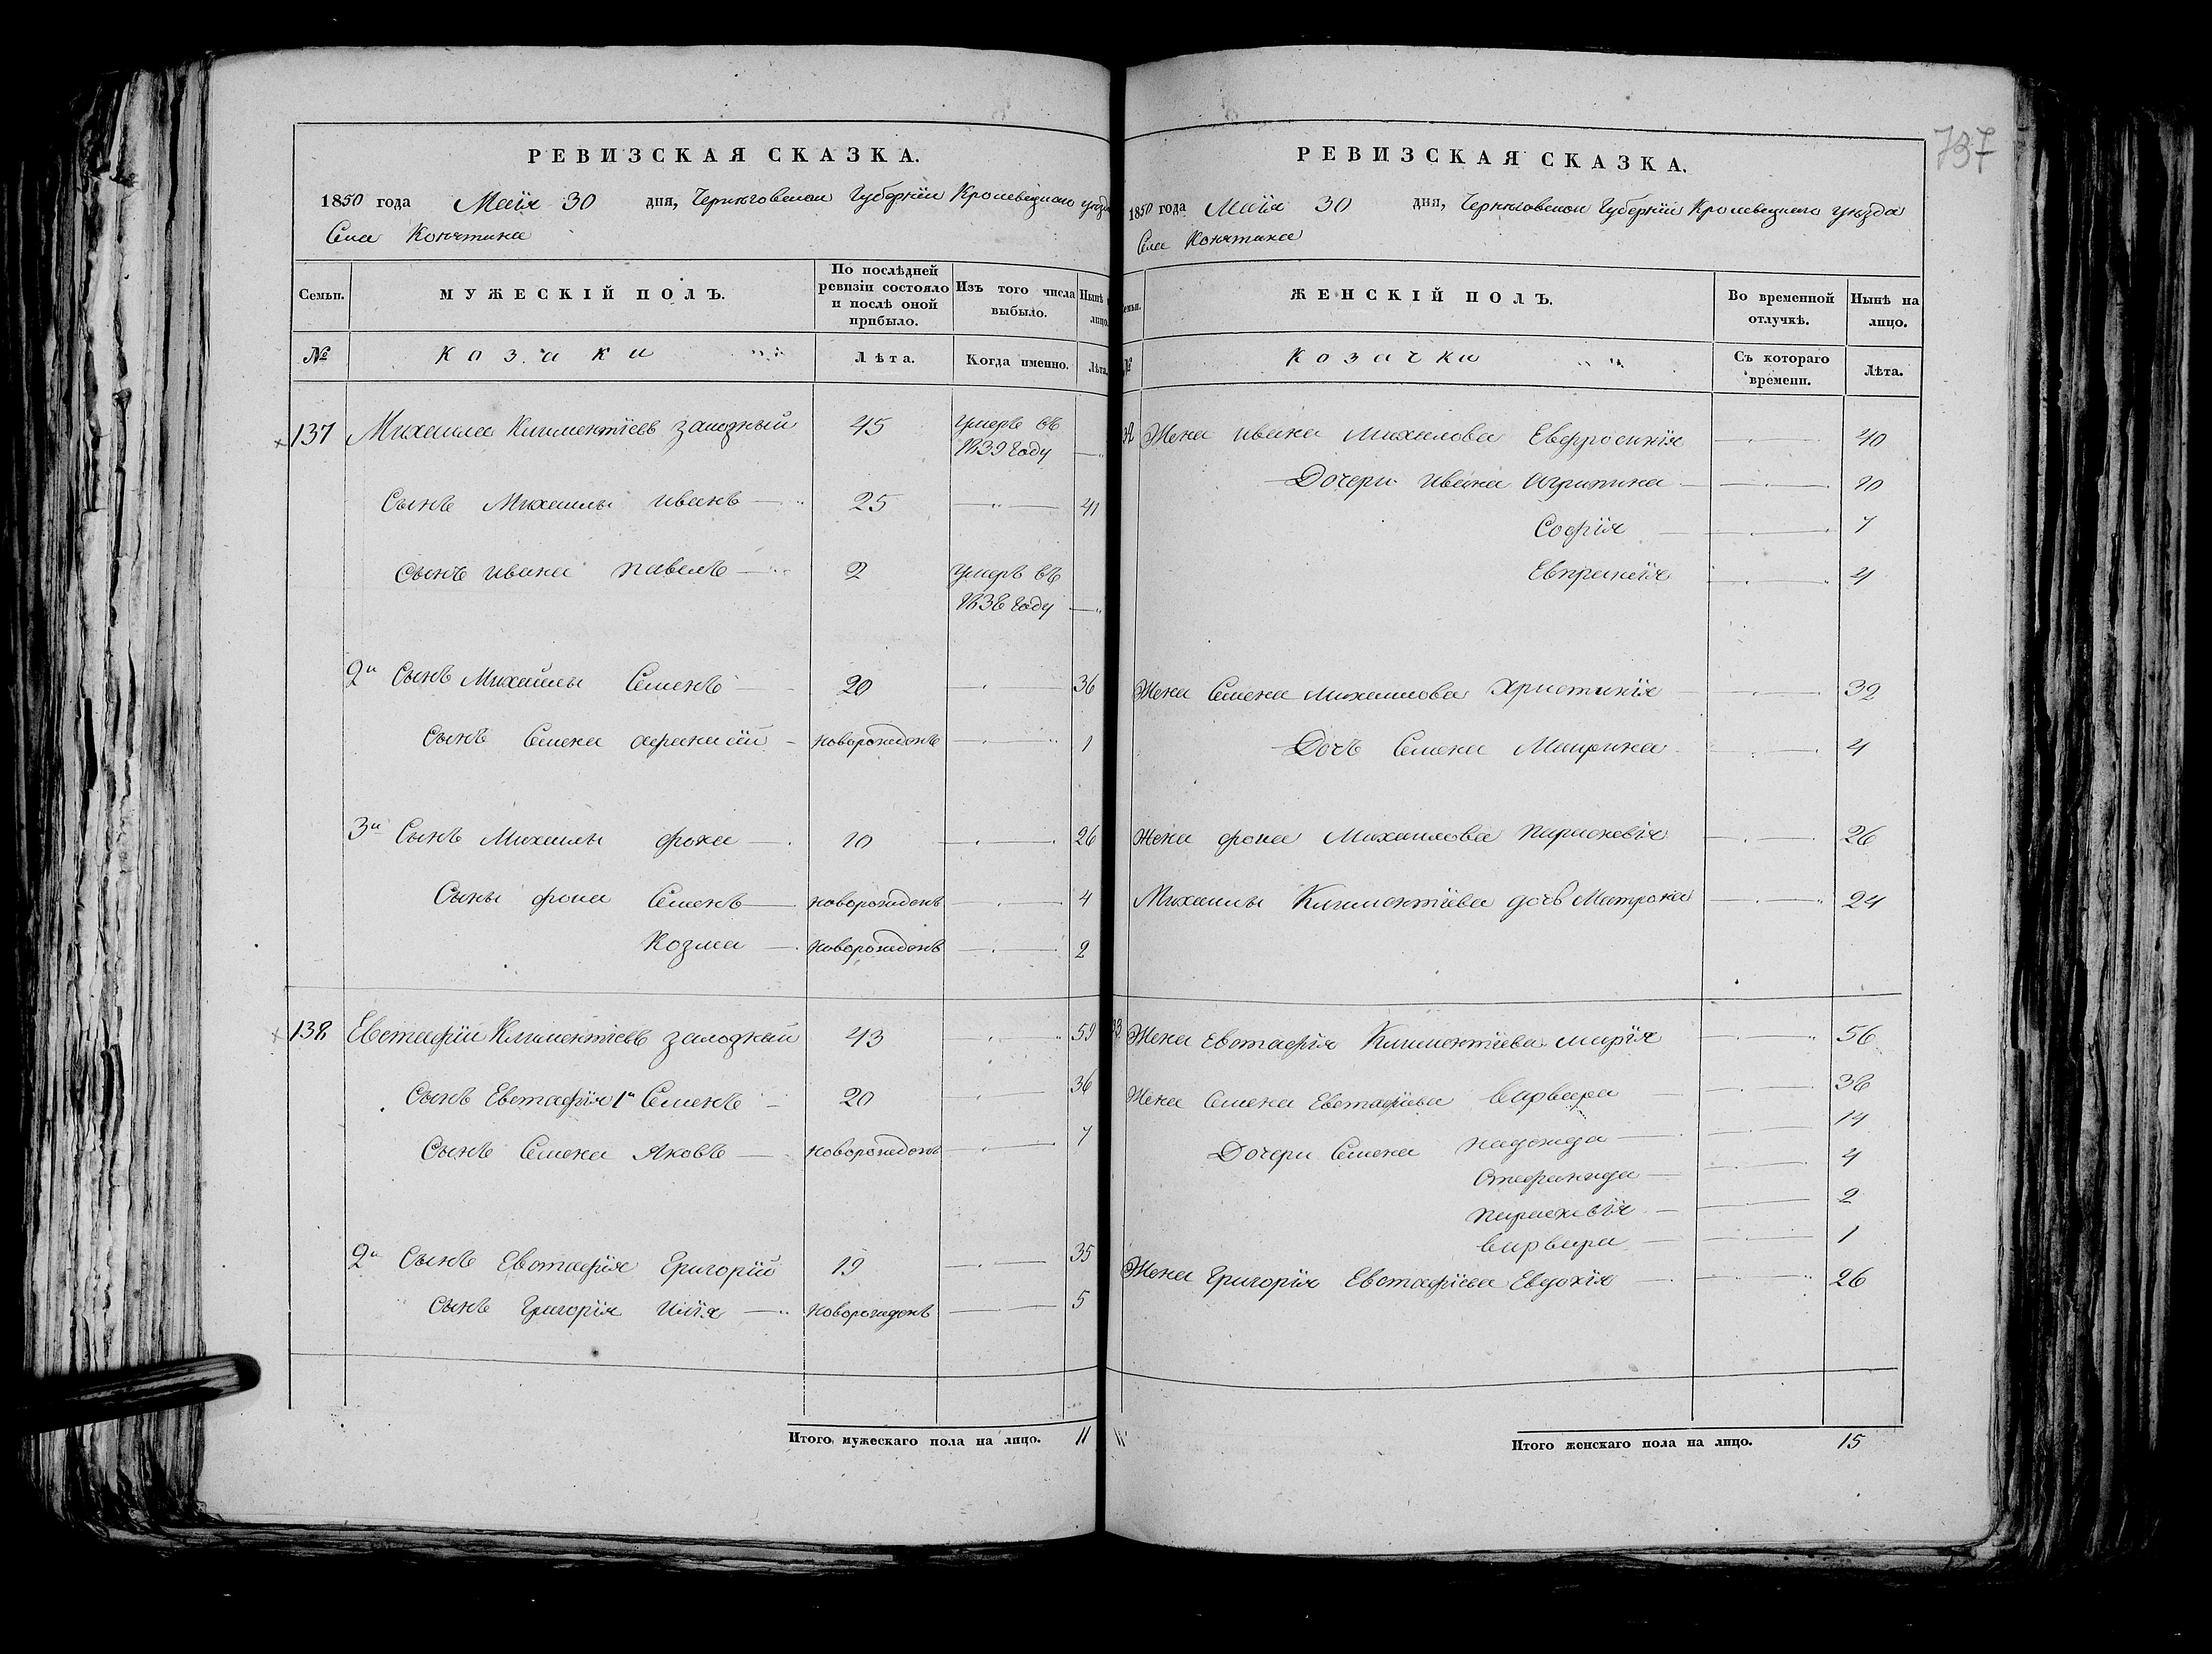 РЕВИЗСКАЯ СКАЗКА.
1850 года Маія 30 дня, Черниговской Губерніи Кролевецкаго уезда
Села Конятина
Семьи. МУЖЕСКІЙ ПОЛЪ. По послѣдней ревизіи состояло и послѣ оной прибыло. Изъ того числа выбыло. Нынѣ лицо.
№ Козаки Лѣта. Когда именно. Лѣта.
137 Михаила Климентіевъ Залозный 45 Умеръ въ
1839 Году
Сынъ Михаилы Иванъ 25 41
Сынъ Ивана Павелъ 2 Умеръ въ
1838 Году
2й Сынъ Михайлы Семенъ 20 36
Сынъ Семена Афанасій новорожденъ 1
3й Сынъ Михаилы Фока 10 26
Сыны Фоки Семенъ новорожденъ 4
Козма новорожденъ 2
138 Евстафій Климентіевъ Залозный 43 59
Сынъ Евстафія 1й Семенъ 20 36
Сынъ Семена Яковъ новорожденъ 7
2й Сынъ Евстафія Григорій 19 35
Сынъ Григорія Илія новорожденъ 5
Итого мужескаго пола на лицо. 11
737
РЕВИЗСКАЯ СКАЗКА.
1850 года Маія 30 дня, Черниговской Губерніи Кролевецкаго уезда
Села Конятина
Семьи. ЖЕНСКІЙ ПОЛЪ. Во временной отлучкѣ. Нынѣ на лицо.
№ Козачки Съ котораго времени. Лѣта.
Жена Ивана Михилова Евфросинія 40
Дочери Ивана Агрипина 10
Софія 7
Евпраксія 4
Жена Семена Михаилова Христинія 32
Дочъ Семена Маврина 4
Жена Фоки Михаилова Параскевія 26
Михаилы Климентіева дочъ Матрона 24
Жена Евстафія Климентіева Марія 56
Жена Семена Евстафіева Варвара 36
Дочери Семена Надежда 14
Стефанида 4
Параскевія 2
Варвара 1
Жена Григорія Евстафіева Евдокія 26
Итого женскаго пола на лицо. 15